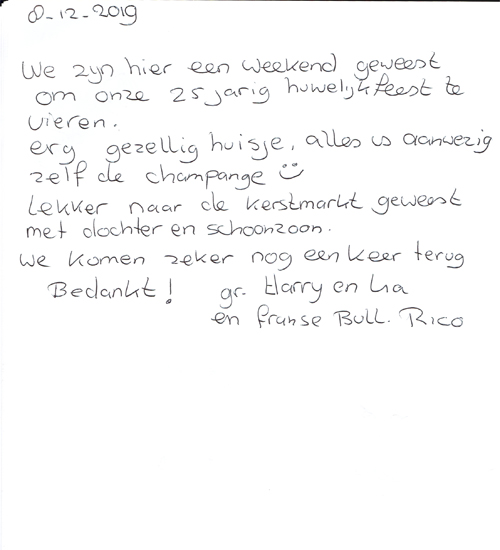 8-12-2019
We zyn hier een weekend geweest
om onze 25 jarig huwelijkfeest te
vieren.
erg gezellig huisje, alles is aanwezig
zelf de champange ☺
Lekker naar de kerstmarkt geweest
met dochter en schoonzoon.
We komen zeker nog een keer terug
Bedankt! gr. Harry en Lia
en franse Bull. Rico